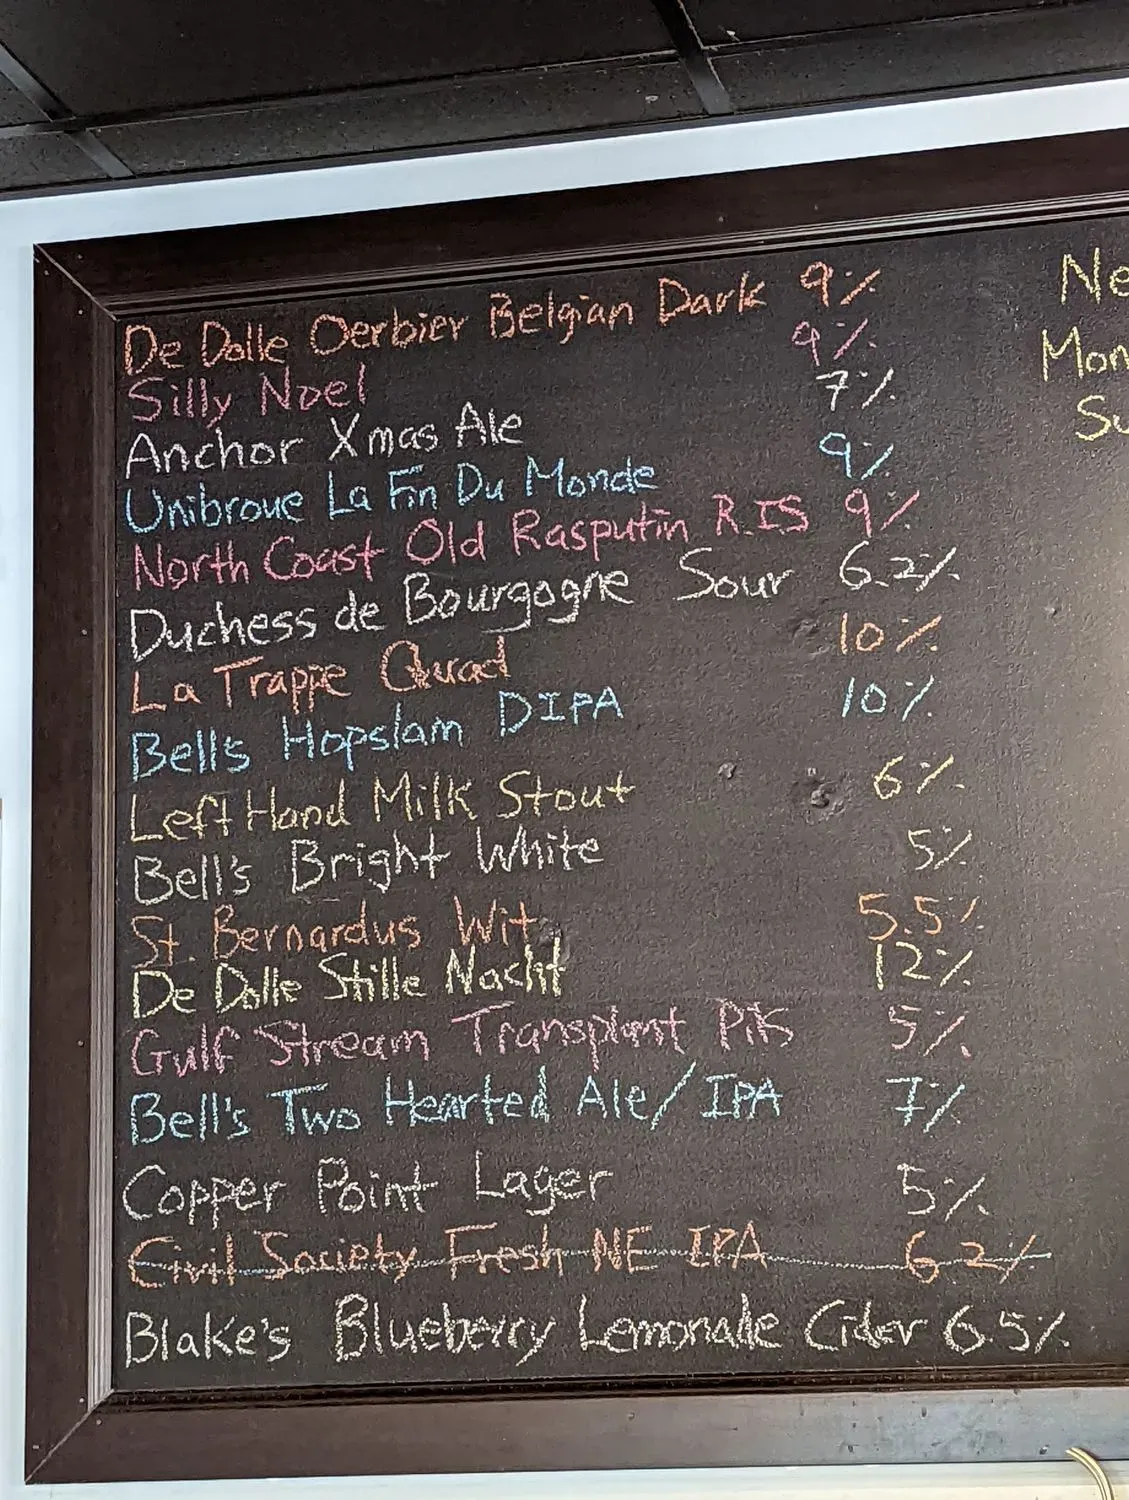 De Dolle Oerbier Belgian Dark 9%
Silly Noel 9%
Anchor Xmas Ale 7%
Unibroue La Fin Du Monde 9%
North Coast Old Rasputin R.IS 9%
Duchess de Bourgogne Sour 6.2%
La Trappe Quad 10%
Bell's Hopslam DIPA 10%
Left Hand Milk Stout 6%
Bell's Bright White 5%
St. Bernardus Wit 5.5%
De Dolle Stille Nacht 12%
Gulf Stream Transplant Pils 5%
Bell's Two Hearted Ale/IPA 7%
Copper Point Lager 5%
Civil Society Fresh NE IPA 6.2%
Blake's Blueberry Lemonade Cider 6.5%
Ne
Mon
Su